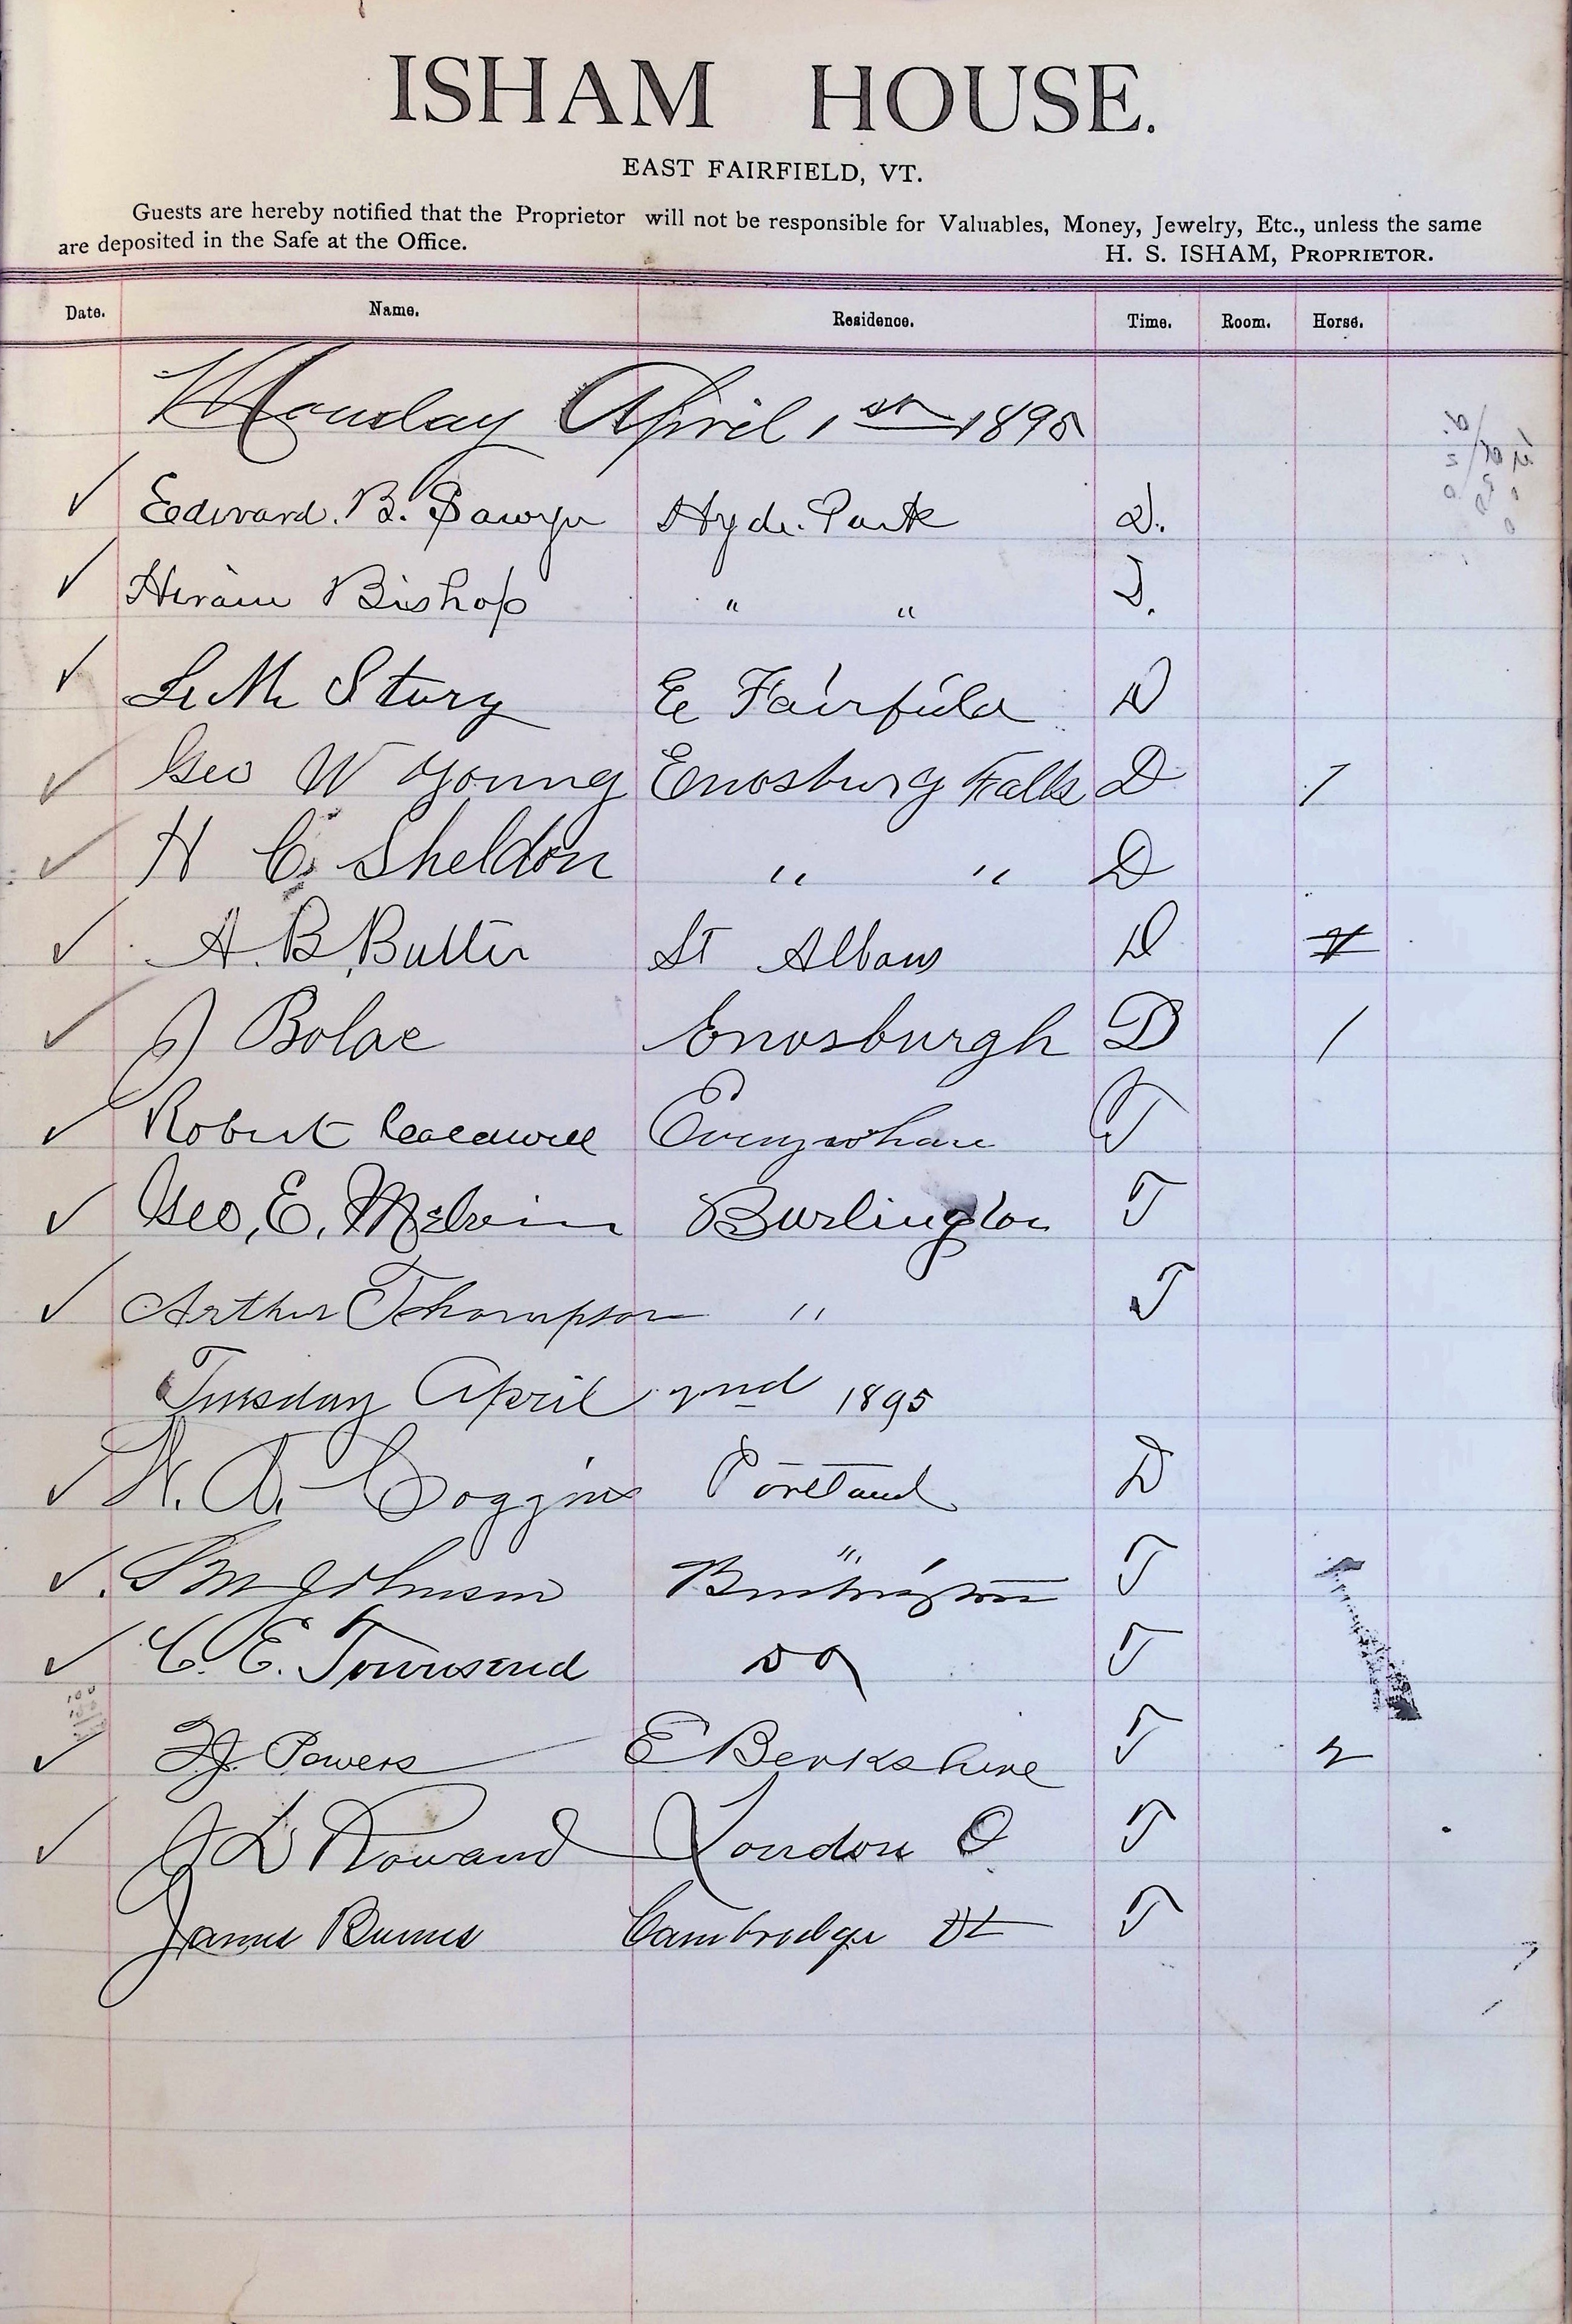 ISHAM HOUSE.
EAST FAIRFIELD, VT.
Guests are hereby notified that the Proprietor will not be responsible for Valuables, Money, Jewelry, Etc., unless the same
are deposited in the Safe at the Office.
H. S. ISHAM, PROPRIETOR.
Date. Name. Residence. Time. Room. Horse.
Monday April 1st 1895
✓ Edward. B. Sawyer Hyde. Park D.
✓ Hiram Bishop " " D.
✓ Story E Fairfield D
✓ Geo W Young Enosburg Falls D 1
✓ H C. Sheldon " " D
✓ A. B. Butler St Albans D
✓ J Bolac Enosburgh D 1
✓ Robert Everywhare T
✓ Geo, E, Melvin Burlington T
✓ Arthur Thompson " T
Tuesday April 2nd 1895
✓ A. Coggins Portland D
✓ Johnson " Burlington T
✓ C. E. Townsend Do T
✓ Powers E Berkshire T 2
✓ J D Rowand London O T
James Burns Cambridge Vt T